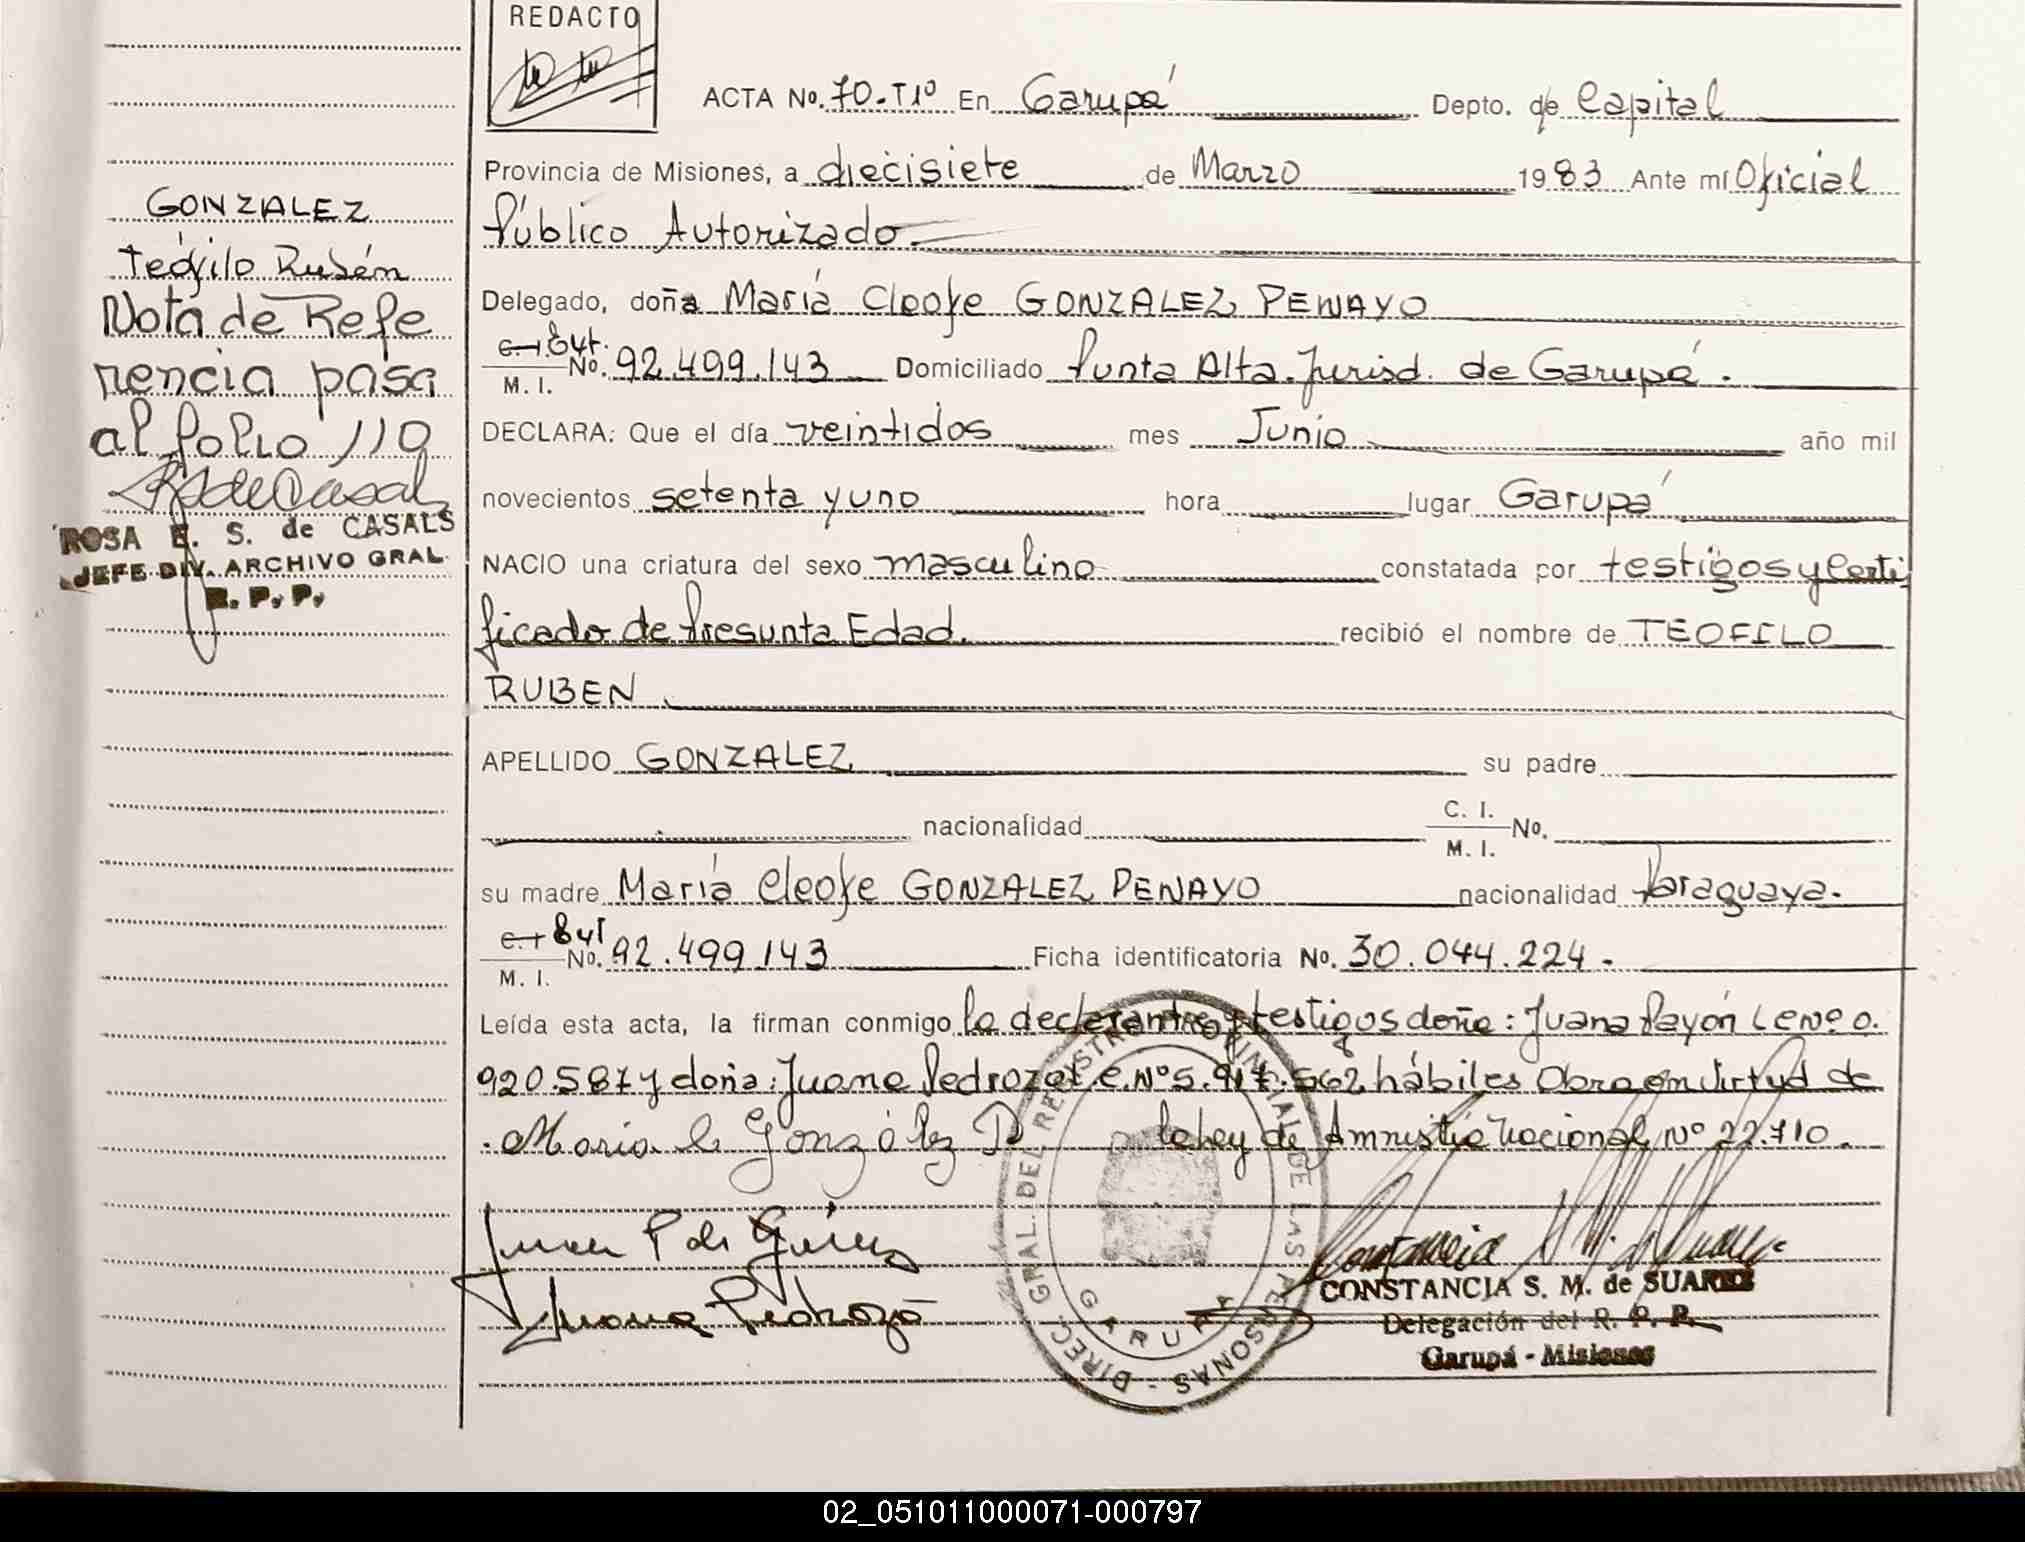 REDACTO
ACTA No. 70-T1º En Garupá Depto. de Capital
Provincia de Misiones, a diecisiete de Marzo 1983 Ante mí Oficial
Público Autorizado.
Delegado, doña María Cleofe GONZALEZ PENAYO
C.I. M. I. No. 92.499.143 Domiciliado Punta Alta. Jurisd. de Garupá.
DECLARA: Que el día veintidos mes Junio año mil
novecientos setenta y uno hora lugar Garupá
NACIO una criatura del sexo masculino constatada por testigos y Certi
ficado de Presunta Edad. recibió el nombre de TEOFILO
RUBEN
APELLIDO GONZALEZ su padre
nacionalidad C. I. M. I. No.
su madre María Cleofe GONZALEZ PENAYO nacionalidad Paraguaya.
C.I. M. I. No. 92.499.143 Ficha identificatoria No. 30.044.224.
Leída esta acta, la firman conmigo la declarante y testigos doña: Juana Payón L e Nº 0.
920.587 y doña: Juana Pedrozo L.e. Nº 5.917.562 hábiles Obra en virtud de
la Ley de Amnistía Nacional Nº 22.710.
Maria C González P
Juana P de
Juana Pedrozo
DIREC. GRAL. DEL REGISTRO PROVINCIAL DE LAS PERSONAS -
GARUPA
CONSTANCIA S. M. de SUAREZ
Delegación del R. P. P.
Garupá - Misiones
GONZALEZ
Teófilo Rubén
Nota de Refe
rencia pasa
al folio 110
ROSA E. S. de CASALS
JEFE DIV. ARCHIVO GRAL.
R. P. P.
02_051011000071-000797